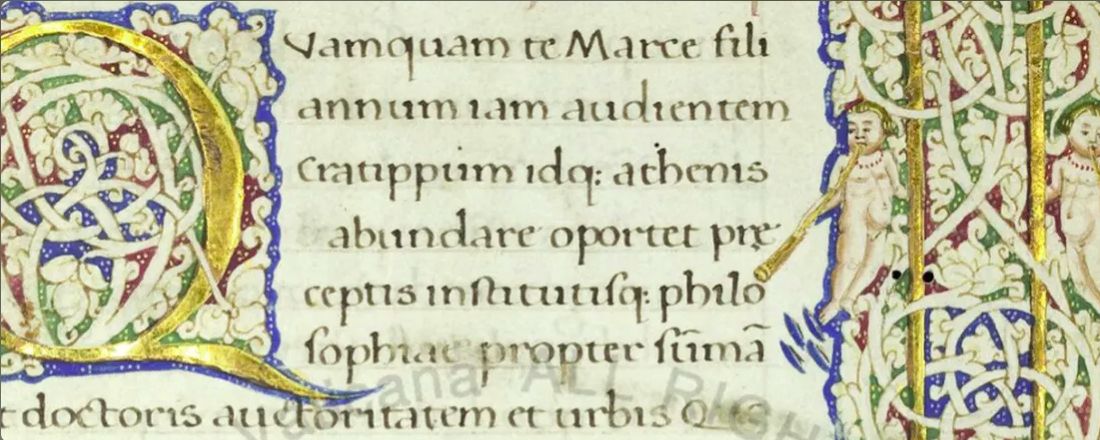 QVamquam te Marce fili
annum iam audientem
Cratippum idq: athenis
abundare oportet prę
ceptis institutisq: philo
sophiae propter sūmā
t doctoris auctoritatem et urbis Q